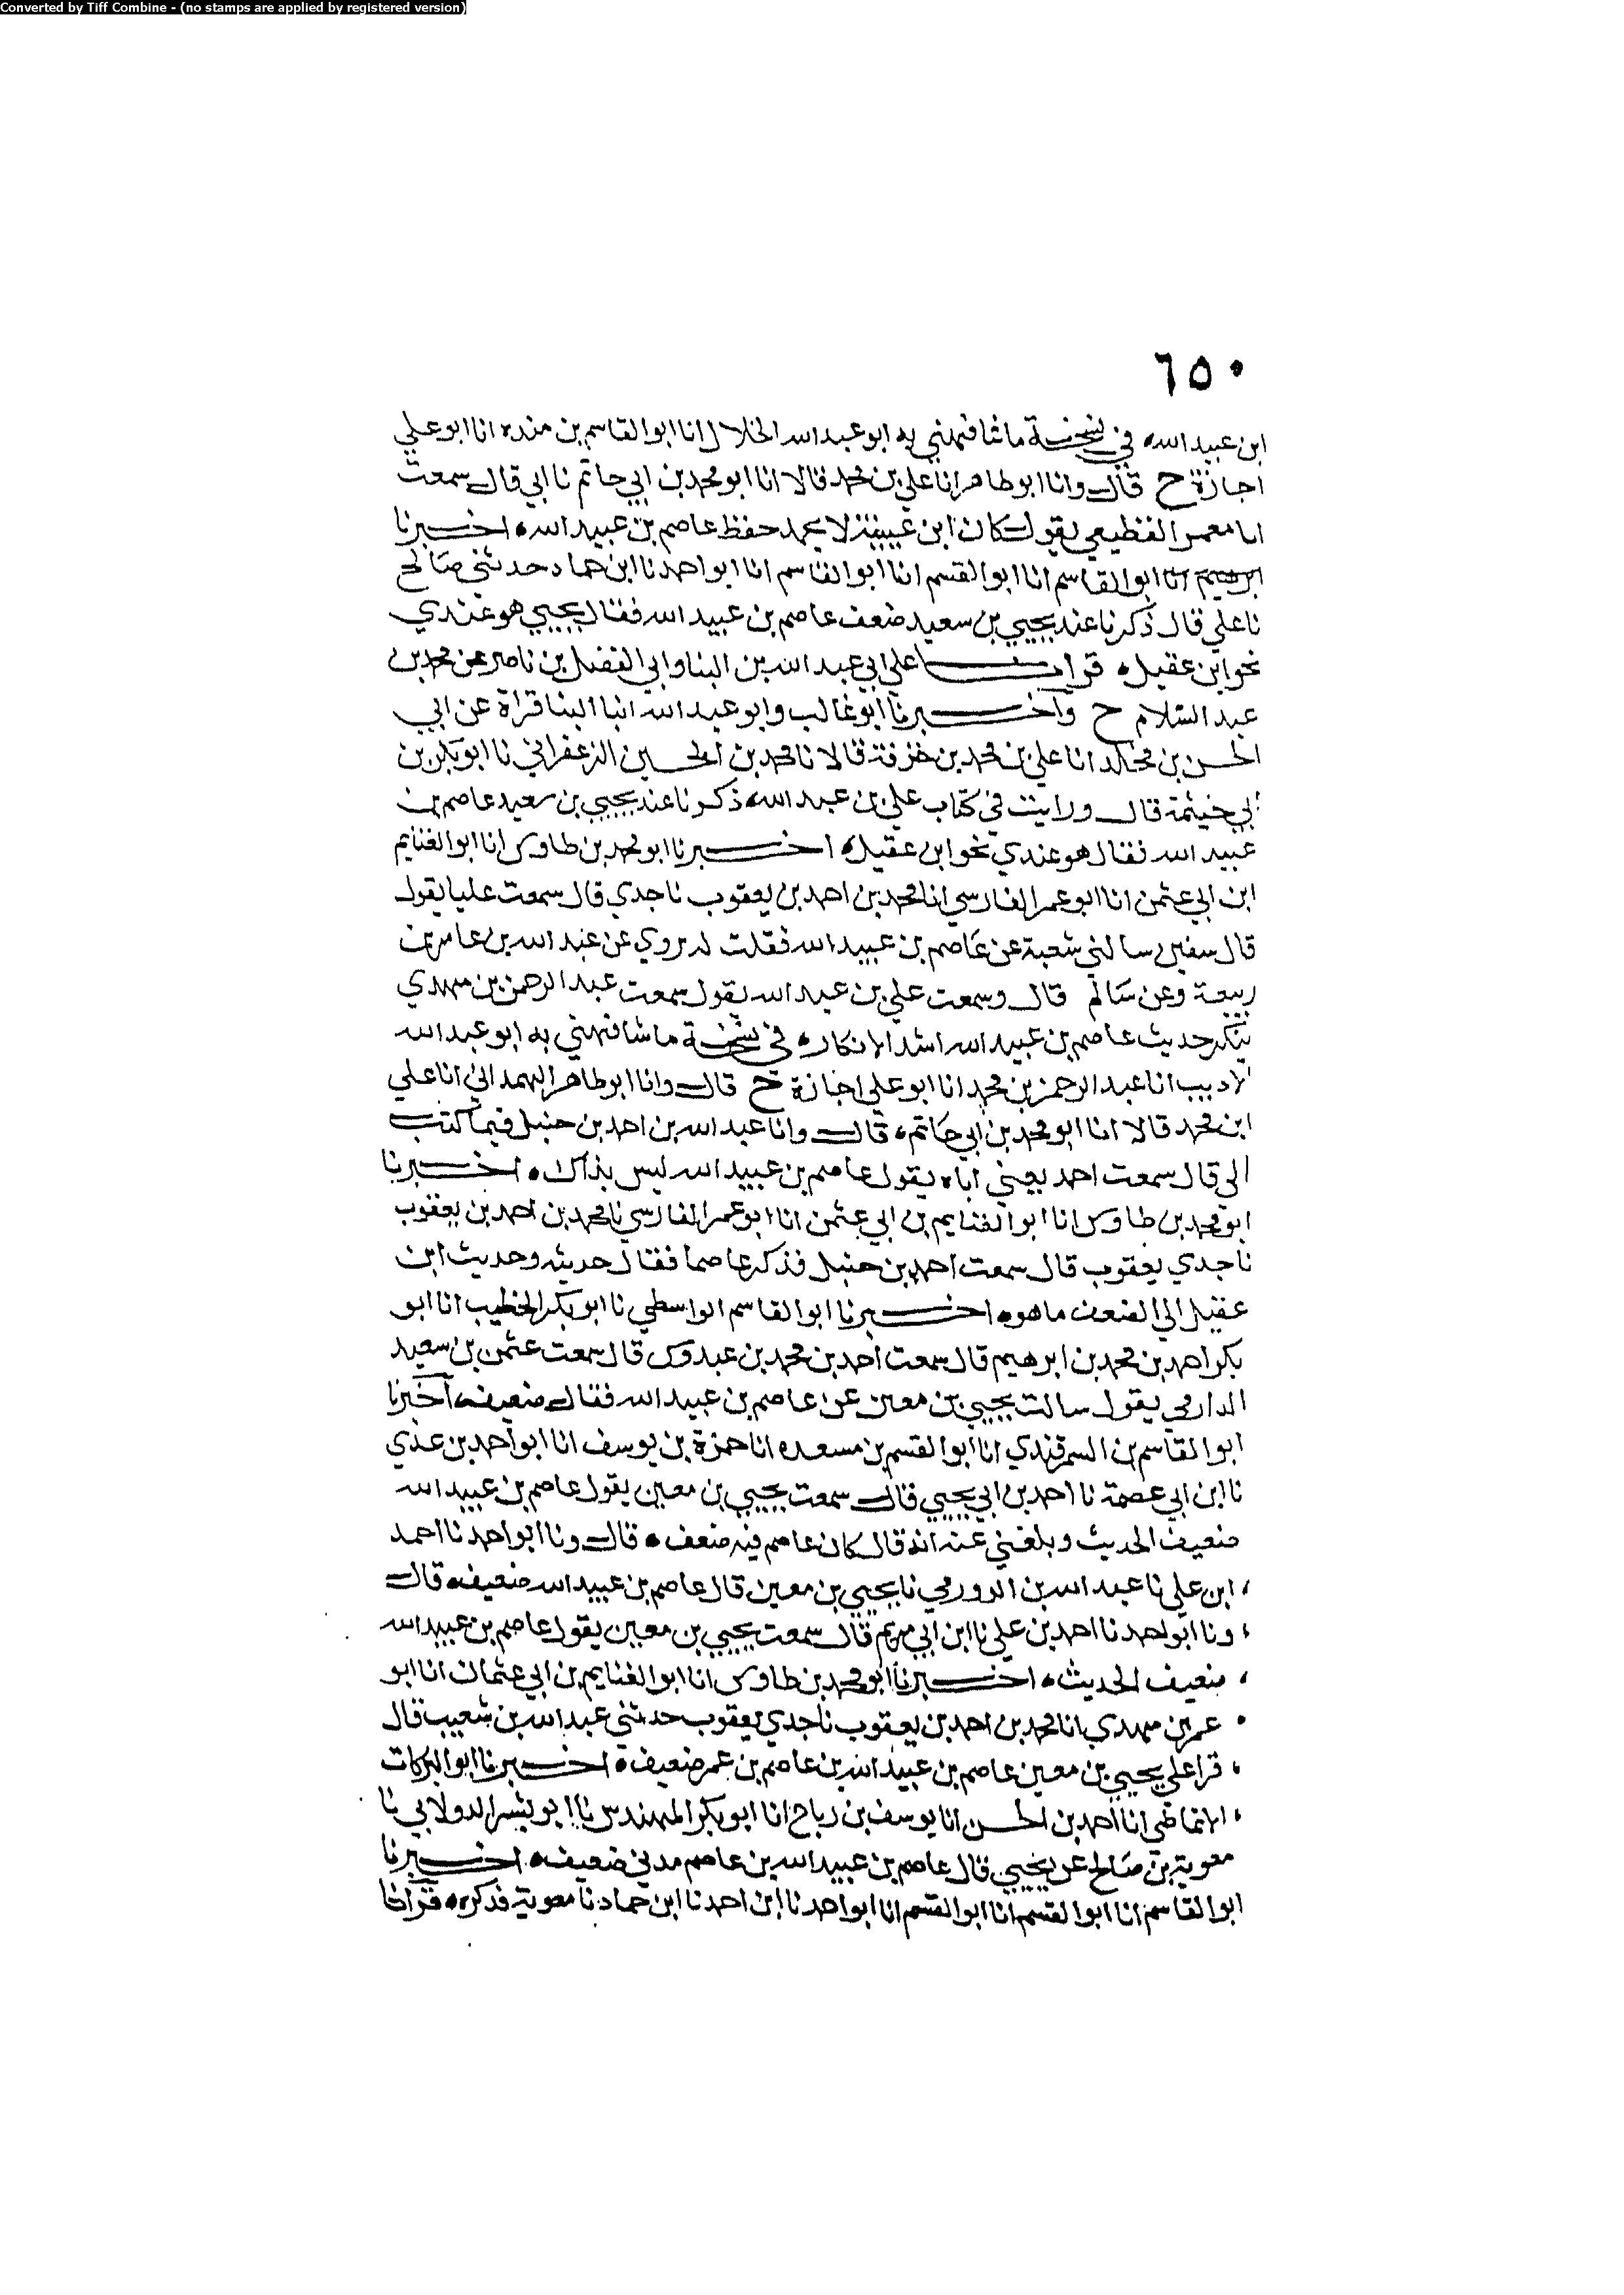 Converted by Tiff Combine - (no stamps are applied by registered version)
٦٥٠
ابن عبيد الله ٥ في نسخة ما شافهني به ابو عبد الله الخلال انا ابو القاسم بن منده انا ابو علي
اجازة ح قال وانا ابو طاهر انا علي بن محمد قالا انا ابو محمد بن ابي حاتم نا ابي قال سمعت
ابا معمر القطيعي يقول كان ابن عيينة لا يحمد حفظ عاصم بن عبيد الله ٥ اخبرنا
ابو القاسم انا ابو القسم انا ابو القاسم انا ابو احمد نا ابن حماد حدثني صالح
نا علي قال ذكرنا عند يحيي بن سعيد ضعف عاصم بن عبيد الله فقال يحيي هو عندي
نحو ابن عقيل ٥ قرانا علي ابي عبد الله بن البنا وابي الفضل بن ناصر عن محمد بن
عبد السلام ح واخبرنا ابو غالب وابو عبد الله انبا البنا قراة عن ابي
الحسن بن مخلد انا علي بن محمد بن خزفة قالا نا محمد بن الحسين الزعفراني نا ابو بكر بن
ابي خيثمة قال ورايت في كتاب علي بن عبد الله ذكرنا عند يحيي بن سعيد عاصم بن
عبيد الله فقال هو عندي نحو ابن عقيل ٥ اخبرنا ابو محمد بن طاوس انا ابو الغنايم
ابن ابي عثمن انا ابو عمر الفارسي انا محمد بن احمد بن يعقوب نا جدي قال سمعت عليا يقول
قال سفين سالني شعبة عن عاصم بن عبيد الله فقلت له يروي عن عبد الله بن عامر بن
ربيعة وعن سالم قال وسمعت علي بن عبد الله يقول سمعت عبد الرحمن بن مهدي
ينكر حديث عاصم بن عبيد الله اشد الانكار ٥ في نسخة ما شافهني به ابو عبد الله
الاديب انا عبد الرحمن بن محمد انا ابو علي اجازة ح قال وانا ابو طاهر الهمداني انا علي
ابن محمد قالا انا ابو محمد بن ابي حاتم ٥ قال وانا عبد الله بن احمد بن حنبل فيما كتب
الي قال سمعت احمد يعني اباه يقول عاصم بن عبيد الله ليس بذاك ٥ اخبرنا
ابو محمد بن طاوس انا ابو الغنايم بن ابي عثمن انا ابو عمر الفارسي نا محمد بن احمد بن يعقوب
نا جدي يعقوب قال سمعت احمد بن حنبل فذكر عاصما فقال حديثه وحديث ابن
عقيل الي الضعف ما هو ٥ اخبرنا ابو القاسم الواسطي نا ابو بكر الخطيب انا ابو
بكر احمد بن محمد بن ابرهيم قال سمعت احمد بن محمد بن عبدوس قال سمعت عثمن بن سعيد
الدارمي يقول سالت يحيي بن معين عن عاصم بن عبيد الله فقال ضعيف ٥ اخبرنا
ابو القاسم بن السمرقندي انا ابو القسم بن مسعده انا حمزة بن يوسف انا ابو احمد بن عدي
نا ابن ابي عصمة نا احمد بن ابي يحيي قال سمعت يحيي بن معين يقول عاصم بن عبيد الله
ضعيف الحديث وبلغني عنه انه قال كان عاصم فيه ضعف ٥ قال ونا ابو احمد نا احمد
ابن علي نا عبد الله بن الدورمي نا يحيي بن معين قال عاصم بن عبيد الله ضعيف ٥ قال
ونا ابو احمد نا احمد بن علي نا ابن ابي مريم قال سمعت يحيي بن معين يقول عاصم بن عبيد الله
ضعيف الحديث ٥ اخبرنا ابو محمد بن طاوس انا ابو الغنايم بن ابي عثمان انا ابو
عمر بن مهدي انا محمد بن احمد بن يعقوب نا جدي يعقوب حدثني عبد الله بن شعيب قال
قرا علي يحيي بن معين عاصم بن عبيد الله بن عاصم بن عمر ضعيف ٥ اخبرنا ابو البركات
الانماطي انا احمد بن الحسن انا يوسف بن رباح انا ابو بكر المهندس نا ابو بشر الدولابي نا
معوية بن صالح عن يحيي قال عاصم بن عبيد الله بن عاصم مدني ضعيف ٥ اخبرنا
ابو القاسم انا ابو القسم انا ابو القسم انا ابو احمد نا ابن احمد نا ابن حماد نا معوية فذكره ٥ قرانا